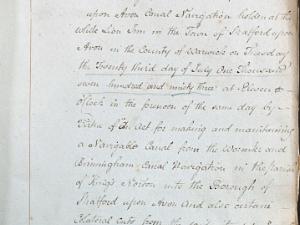 upon Avon Canal Navigation holden at the
White Lion Inn in the Town of Stratford upon
Avon in the County of Warwick on Tuesday
the Twenty third day of July One Thousand
seven hundred and ninety three at Eleven
o'Clock in the forenoon of the same day by
Virtue of the Act for making and maintaining
a Navigable Canal from the Warwick and
Birmingham Canal Navigation in the parish
of King's Norton into the Borough of
Stratford upon Avon And also certain
Collateral Cuts from the